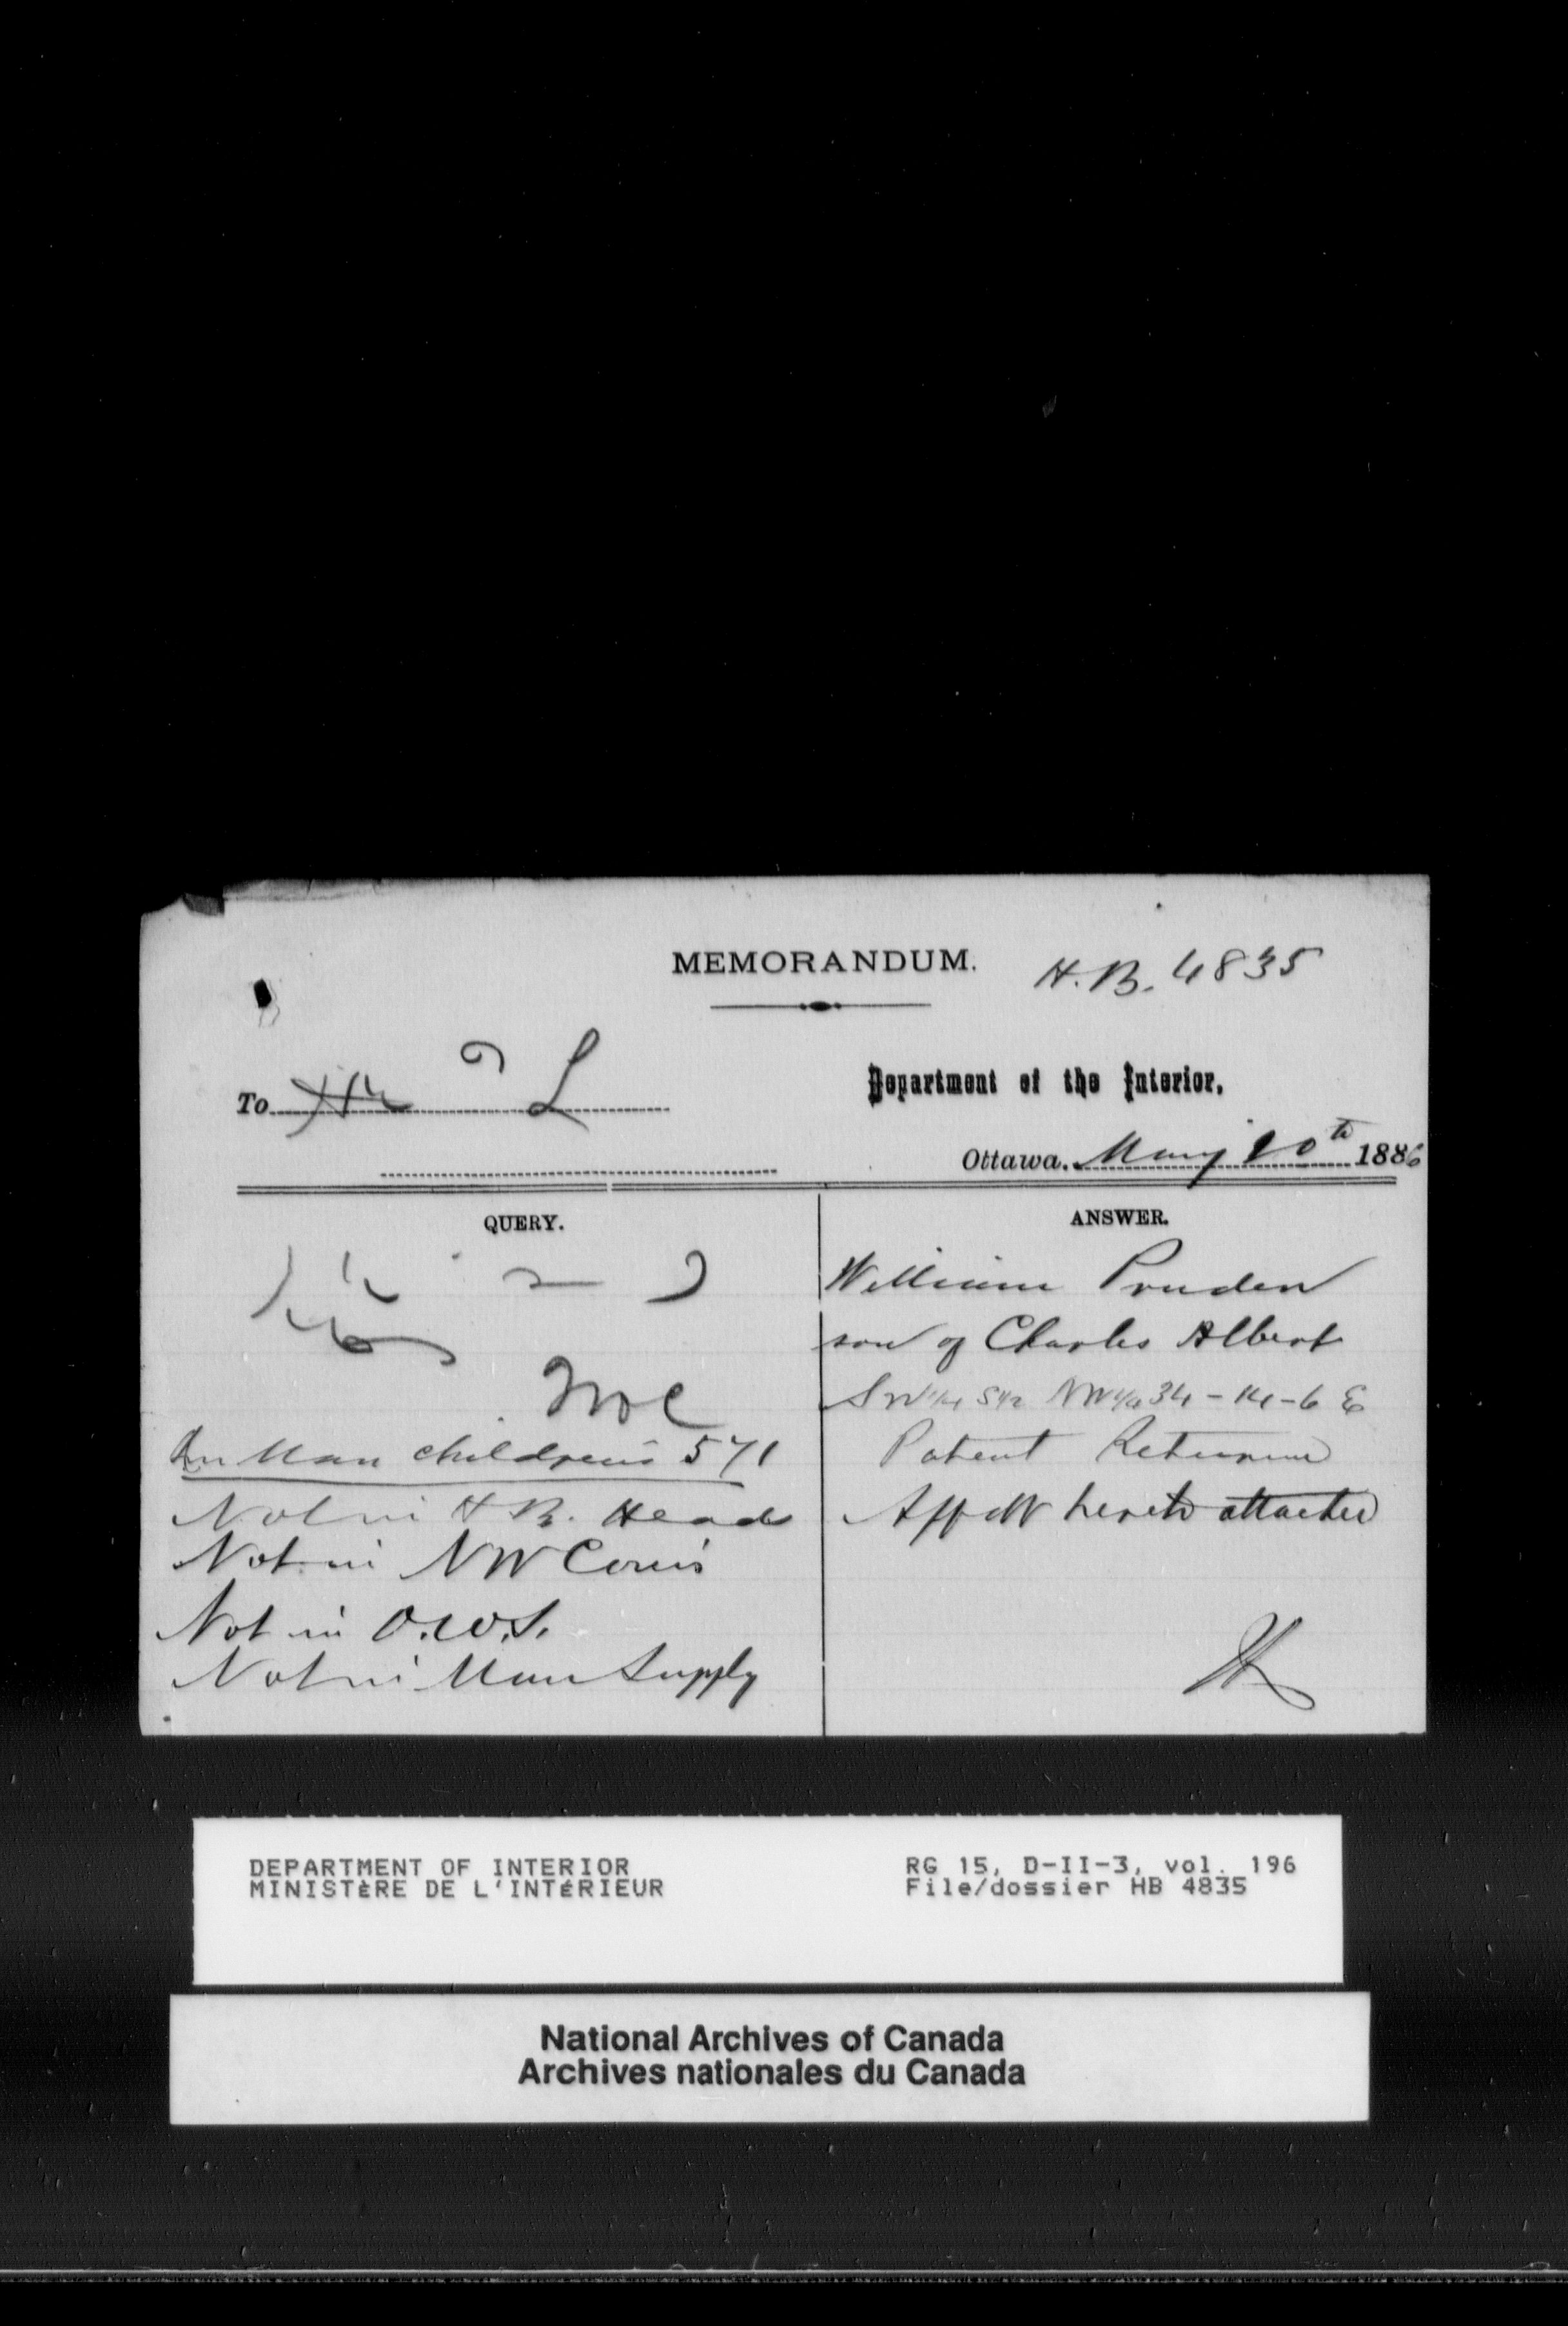 MEMORANDUM.
H.B. 4835
To
L
Department of the Interior,
Ottawa, May 10th 1886
QUERY.
In Man children's 571
Not in H B. Heads
Not in NW Coms
Not in O.W.S.
Not in Man Supply
ANSWER.
William Pruden
son of Charles Albert
SW 1/4 S 1/2 NW 1/4 34 - 14 - 6 E
Patent
hereto attached
DEPARTMENT OF INTERIOR
MINISTÈRE DE L'INTÉRIEUR
RG 15, D-II-3, vol. 196
File/dossier HB 4835
National Archives of Canada
Archives nationales du Canada